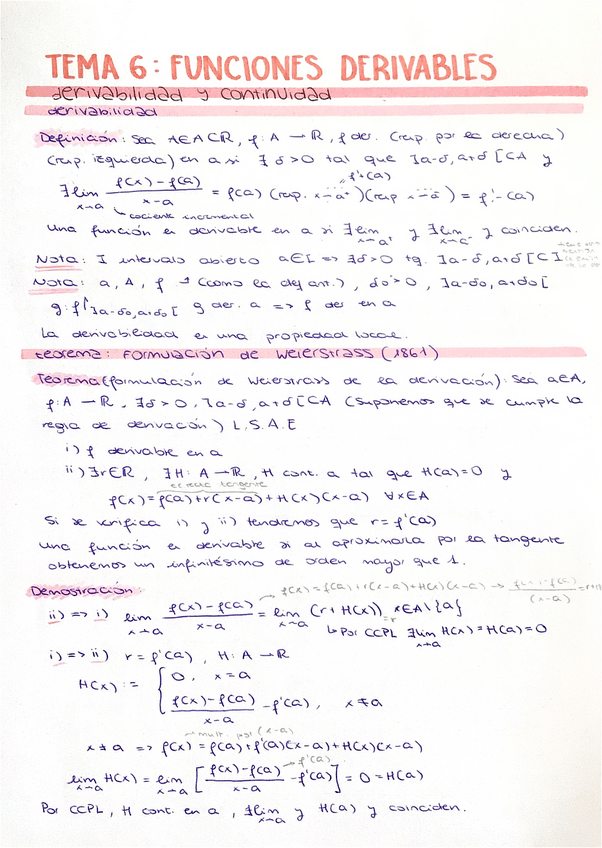 TEMA 6: FUNCIONES DERIVABLES
derivabilidad y continuidad
derivabilidad
Definición: Sea a∈A⊂ℝ, f: A → ℝ, f der. (resp. por la derecha)
(resp. izquierda) en a si ∃ δ>0 tal que ]a-δ, a+δ[ ⊂ A y
f'+(a)
∃ lim x→a (f(x) - f(a))/(x-a) = f(a) (resp. x→a⁺) (resp x→a⁻) = f'-(a)
cociente incremental
Una función es derivable en a si ∃ lim x→a⁺ y ∃ lim x→a⁻ y coinciden.
Nota: I intervalo abierto a∈I => ∃δ>0 tq. ]a-δ, a+δ[ ⊂ I
Nota: a, A, f → (como la def ant.), δ₀>0, ]a-δ₀, a+δ₀[
g: f↾]a-δ₀, a+δ₀[ g der. a => f der en a
La derivabilidad es una propiedad local.
teorema: Formulación de Weierstrass (1861)
Teorema (formulación de Weierstrass de la derivación): Sea a∈A,
f: A → ℝ, ∃δ>0, ]a-δ, a+δ[ ⊂ A (Suponemos que se cumple la
regla de derivación) L.S.A.E
i) f derivable en a
ii) ∃r∈ℝ, ∃H: A → ℝ, H cont. a tal que H(a)=0 y
es recta tangente
f(x) = f(a)+r(x-a)+H(x)(x-a) ∀x∈A
Si se verifica i) y ii) tendremos que r = f'(a)
Una función es derivable si al aproximarla por la tangente
obtenemos un infinitésimo de orden mayor que 1.
f(x) = f(a)+r(x-a)+H(x)(x-a) → (f(x)-f(a))/(x-a) = r+H
Demostración:
ii) => i) lim x→a (f(x) - f(a))/(x-a) = lim x→a (r+H(x)) = r, x∈A\{a}
↳ Por CCPL ∃ lim x→a H(x) = H(a) = 0
i) => ii) r = f'(a), H: A → ℝ
H(x) := { 0, x=a
(f(x) - f(a))/(x-a) - f'(a), x≠a
mult. por (x-a)
x≠a => f(x) = f(a)+f'(a)(x-a)+H(x)(x-a)
f'(a)
lim x→a H(x) = lim x→a [(f(x)-f(a))/(x-a) - f'(a)] = 0 = H(a)
Por CCPL, H cont. en a, ∃ lim x→a y H(a) y coinciden.